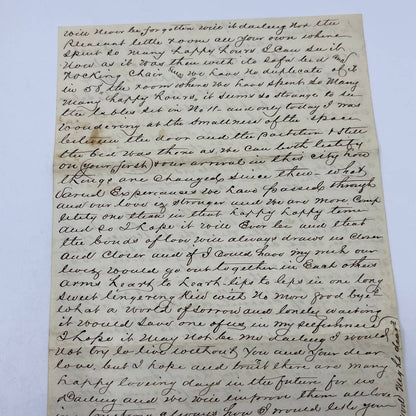 will never be forgotten will it darling Not the
Pleasant little room all your own where
spent so many happy hours I can see it
Now as it was then with its sofa bed and
rocking chair we have no duplicate of it
in 58, the room where we have spent so many
many happy hours, it seems so strange to see
the tables set in No 11 and only today I was
wondering at the smallness of the space
between the door and the partition & still
the bed was there as we can both testify
on your first your arrival in this city how
things are changed since then what
varied Experiences we have passed through
and our love is stronger and we are more Comp
letely one than in that happy happy time
and so I hope it will Ever be and that
the bonds of love will always draw us closer
and closer and if I could have my wish our
lives would go out together in Each others
arms heart to heart lips to lips in one long
sweet lingering Kiss with no more good byes
what a world of sorrow and lonely waiting
it would save one of us, in my selfishness
I hope it may Not be me Darling I would
not try to live without you and your dear
love, but I hope and trust there are many
happy loveing days in the future for us
Darling and we will improve them all
always I would